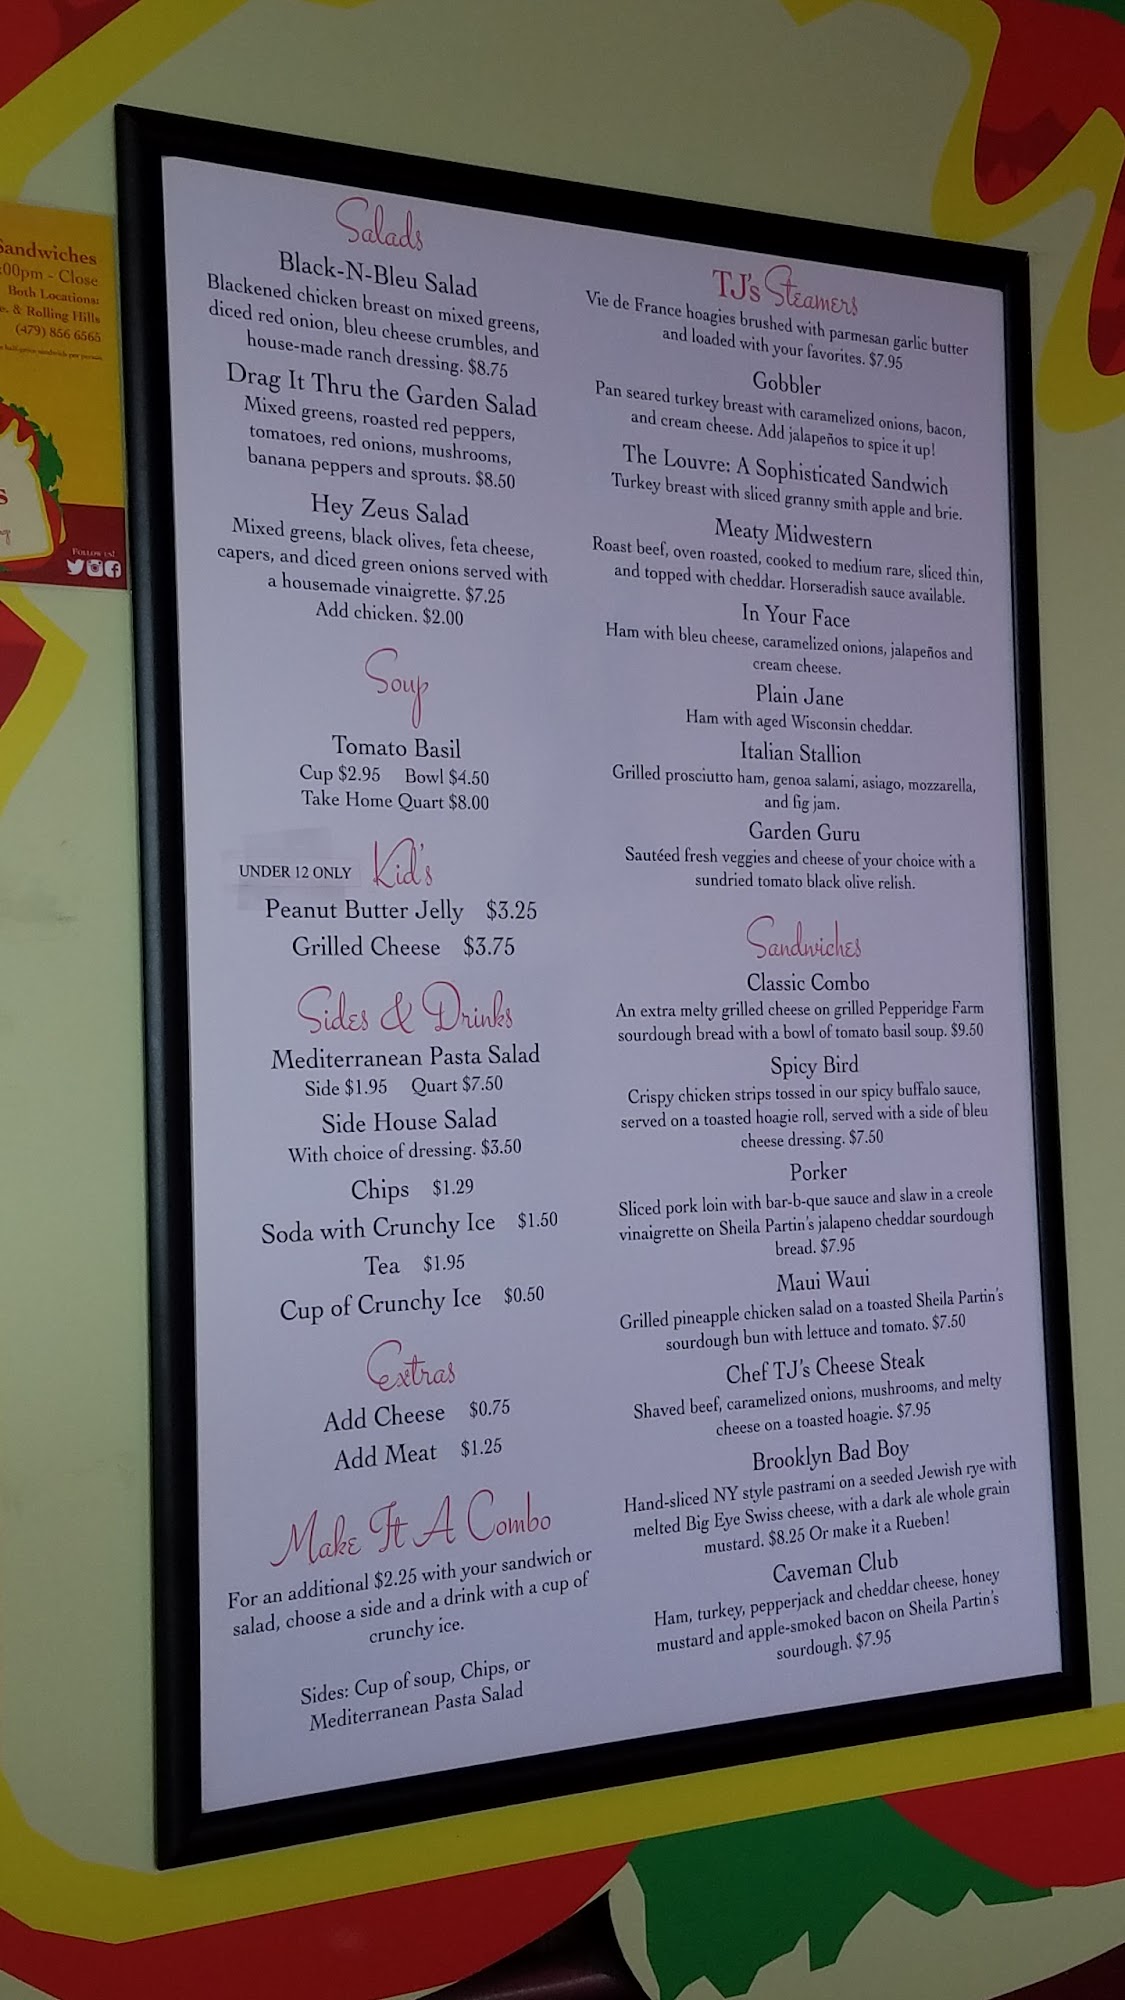 Sandwiches
:00pm - Close
Both Locations:
& Rolling Hills
(479) 856 6565
Follow us!
Salads
Black-N-Bleu Salad
Blackened chicken breast on mixed greens,
diced red onion, bleu cheese crumbles, and
house-made ranch dressing. $8.75
Drag It Thru the Garden Salad
Mixed greens, roasted red peppers,
tomatoes, red onions, mushrooms,
banana peppers and sprouts. $8.50
Hey Zeus Salad
Mixed greens, black olives, feta cheese,
capers, and diced green onions served with
a housemade vinaigrette. $7.25
Add chicken. $2.00
Soup
Tomato Basil
Cup $2.95 Bowl $4.50
Take Home Quart $8.00
UNDER 12 ONLY Kid's
Peanut Butter Jelly $3.25
Grilled Cheese $3.75
Sides & Drinks
Mediterranean Pasta Salad
Side $1.95 Quart $7.50
Side House Salad
With choice of dressing. $3.50
Chips $1.29
Soda with Crunchy Ice $1.50
Tea $1.95
Cup of Crunchy Ice $0.50
Extras
Add Cheese $0.75
Add Meat $1.25
Make It A Combo
For an additional $2.25 with your sandwich or
salad, choose a side and a drink with a cup of
crunchy ice.
Sides: Cup of soup, Chips, or
Mediterranean Pasta Salad
TJ's Steamers
Vie de France hoagies brushed with parmesan garlic butter
and loaded with your favorites. $7.95
Gobbler
Pan seared turkey breast with caramelized onions, bacon,
and cream cheese. Add jalapeños to spice it up!
The Louvre: A Sophisticated Sandwich
Turkey breast with sliced granny smith apple and brie.
Meaty Midwestern
Roast beef, oven roasted, cooked to medium rare, sliced thin,
and topped with cheddar. Horseradish sauce available.
In Your Face
Ham with bleu cheese, caramelized onions, jalapeños and
cream cheese.
Plain Jane
Ham with aged Wisconsin cheddar.
Italian Stallion
Grilled prosciutto ham, genoa salami, asiago, mozzarella,
and fig jam.
Garden Guru
Sautéed fresh veggies and cheese of your choice with a
sundried tomato black olive relish.
Sandwiches
Classic Combo
An extra melty grilled cheese on grilled Pepperidge Farm
sourdough bread with a bowl of tomato basil soup. $9.50
Spicy Bird
Crispy chicken strips tossed in our spicy buffalo sauce,
served on a toasted hoagie roll, served with a side of bleu
cheese dressing. $7.50
Porker
Sliced pork loin with bar-b-que sauce and slaw in a creole
vinaigrette on Sheila Partin's jalapeno cheddar sourdough
bread. $7.95
Maui Waui
Grilled pineapple chicken salad on a toasted Sheila Partin's
sourdough bun with lettuce and tomato. $7.50
Chef TJ's Cheese Steak
Shaved beef, caramelized onions, mushrooms, and melty
cheese on a toasted hoagie. $7.95
Brooklyn Bad Boy
Hand-sliced NY style pastrami on a seeded Jewish rye with
melted Big Eye Swiss cheese, with a dark ale whole grain
mustard. $8.25 Or make it a Rueben!
Caveman Club
Ham, turkey, pepperjack and cheddar cheese, honey
mustard and apple-smoked bacon on Sheila Partin's
sourdough. $7.95